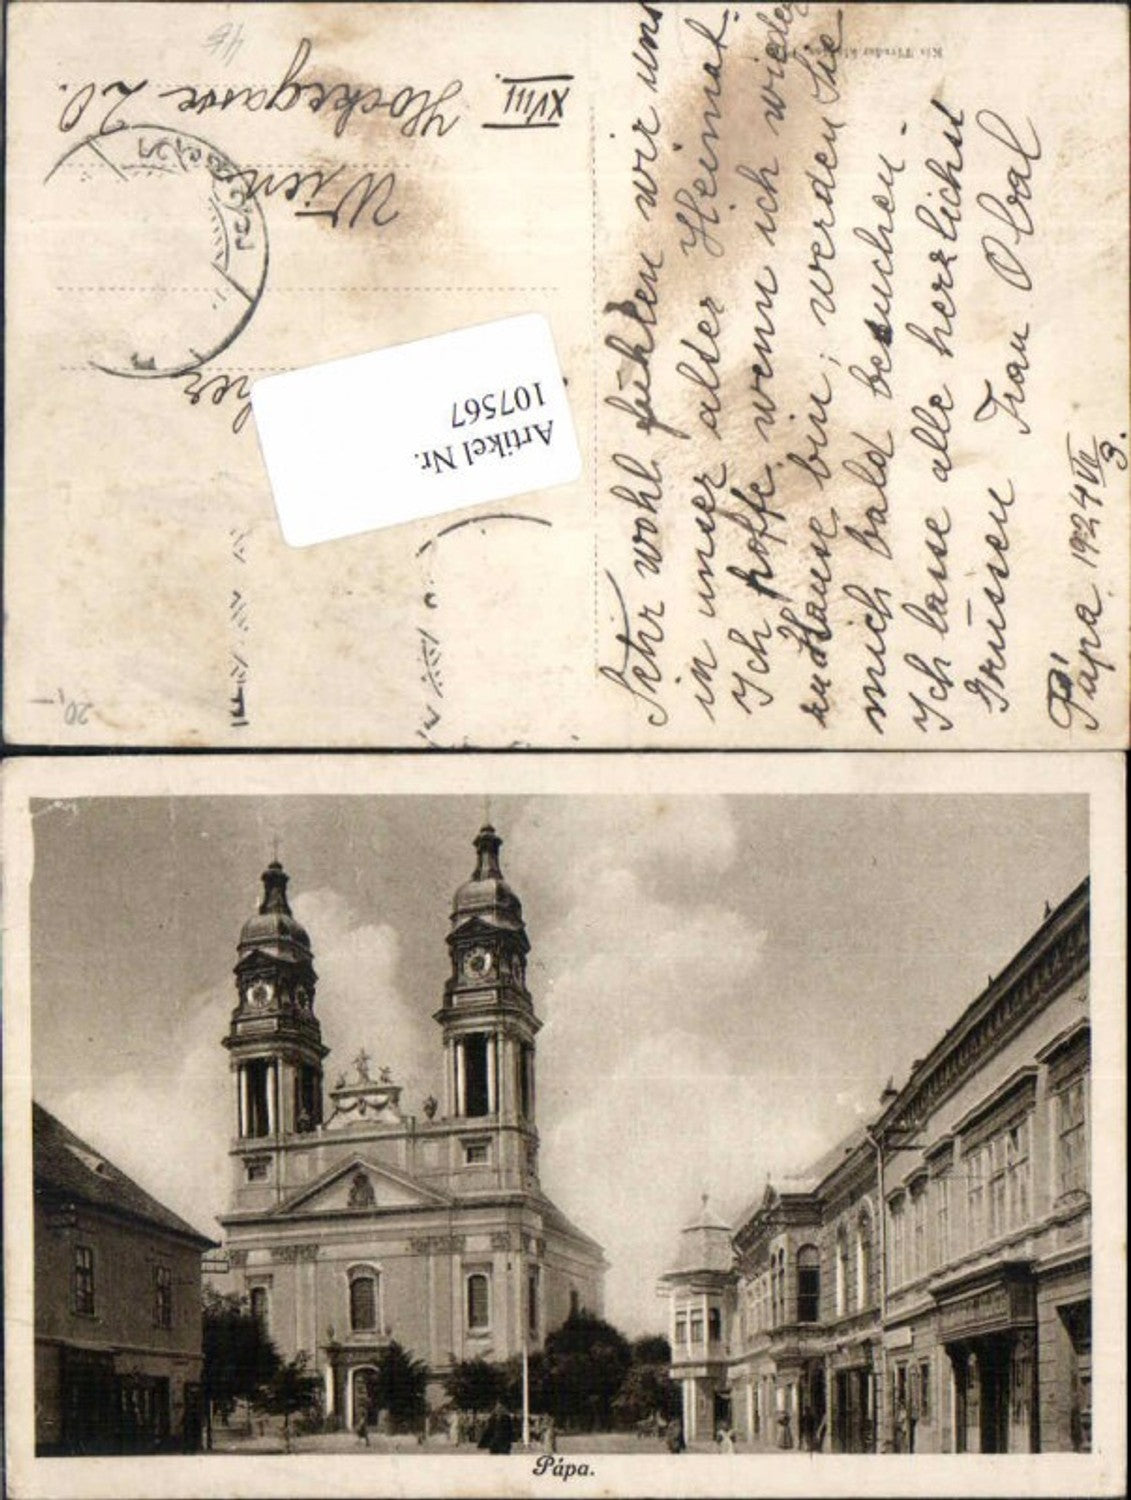 Sehr wohl fühlen wir uns
in unser alder Heimat.
Ich hoffe, wenn ich wieder
zu Hause bin, werden Sie
mich bald besuchen.
Ich lasse alle herzlichst
Grüssen Frau Obal
Pápa 1924 VII
3.
Wien
XVIII. Hockegasse 20.
Artikel Nr.
107567
20,-
Pápa.